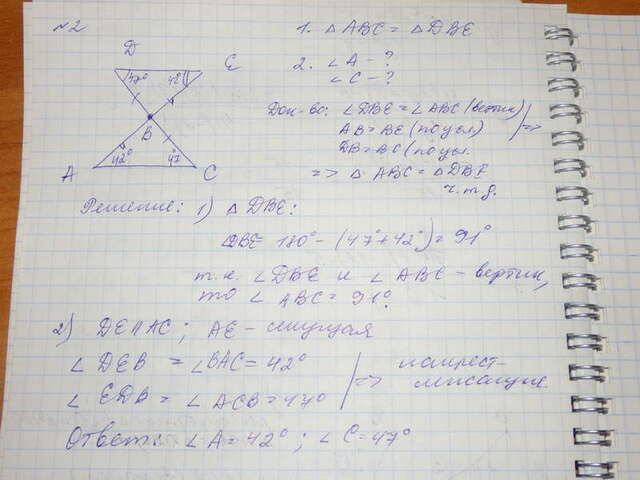 №2
1. △ABC = △DBE
2. ∠A - ?
∠C - ?
D
E
47°
42°
B
42°
47
A
C
Док-во: ∠DBE = ∠ABC (вертик)
AB = BE (по усл)
DB = BC (по усл.
=>
=> △ABC = △DBE
ч.т.д.
Решение: 1) △DBE:
DBE 180° - (47° + 42°) = 91°
т.к. ∠DBE и ∠ABC - вертик,
то ∠ABC = 91°
2) DE || AC; AE - секущая
∠DEB = ∠BAC = 42°
∠EDB = ∠ACB = 47°
=> накрест-
лежащие
Ответ: ∠A = 42°; ∠C = 47°